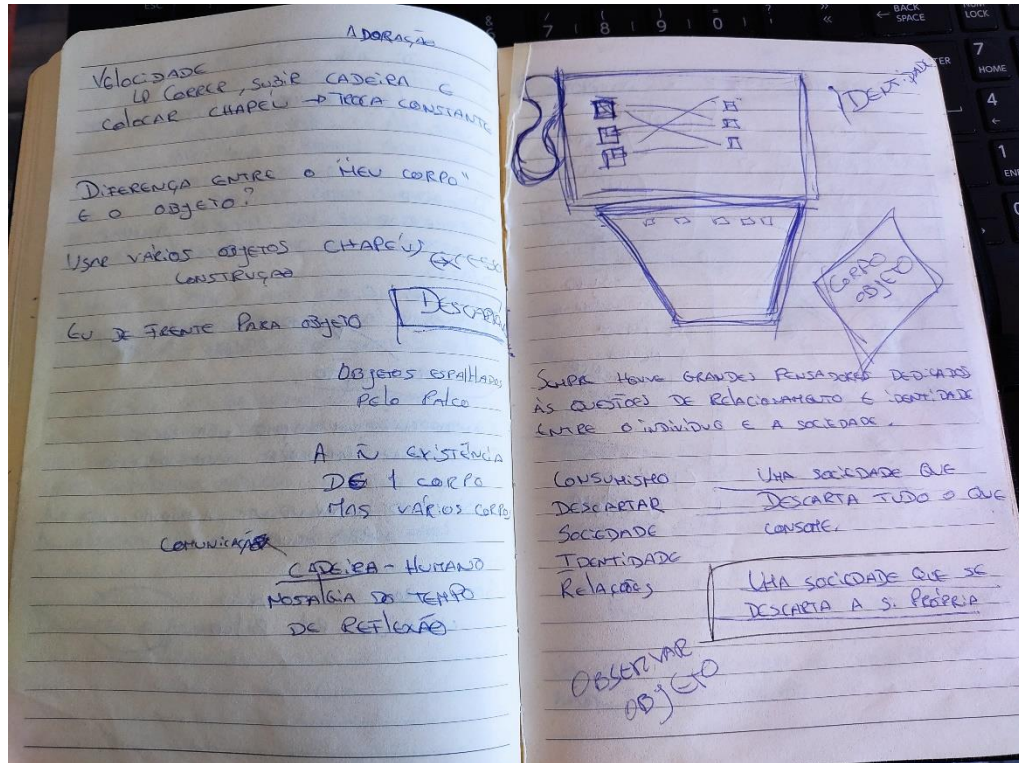 ADORAÇÃO
VELOCIDADE
↳ CORRER, SUBIR CADEIRA E
COLOCAR CHAPEU → TROCA CONSTANTE
DIFERENÇA ENTRE O "MEU CORPO"
E O OBJETO?
USAR VÁRIOS OBJETOS CHAPÉUS EXCESSO
CONSTRUÇÃO
EU DE FRENTE PARA OBJETO
DESCARTAR
OBJETOS ESPALHADOS
PELO PALCO
A Ñ EXISTÊNCIA
DE 1 CORPO
MAS VÁRIOS CORPO
COMUNICAÇÃO
CADEIRA - HUMANO
NOSTALGIA DO TEMPO
DE REFLEXÃO
IDENTIDADE
CORPO
OBJETO
SEMPRE HOUVE GRANDES PENSADORES DEDICADOS
ÀS QUESTÕES DE RELACIONAMENTO E IDENTIDADE
ENTRE O INDIVIDUO E A SOCIEDADE.
CONSUMISMO
DESCARTAR
SOCIEDADE
IDENTIDADE
RELAÇÕES
UMA SOCIEDADE QUE
DESCARTA TUDO O QUE
CONSOME.
UMA SOCIEDADE QUE SE
DESCARTA A SI PRÓPRIA
OBSERVAR
OBJETO
BACK
SPACE
LOCK
7
8
9
0
7
HOME
4
1